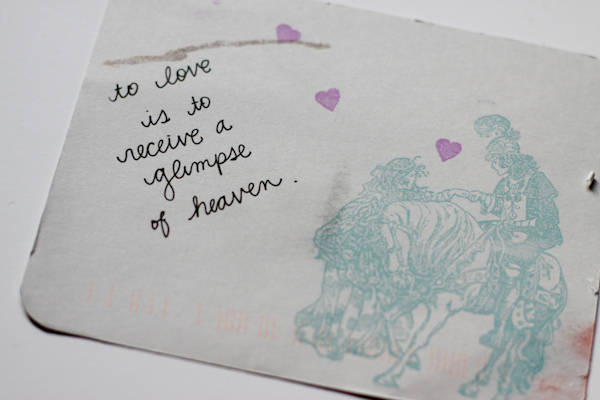 to love
is to
receive a
glimpse
of heaven.